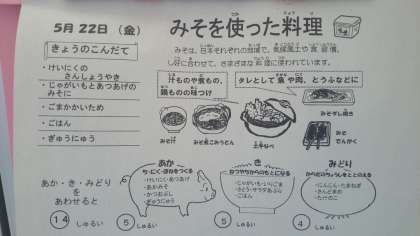 5月22日(金)
みそを使った料理
りょうり
きょうのこんだて
・けいにくの
さんしょうやき
・じゃがいもとあつあげの
みそに
・ごまかかいため
・ごはん
・ぎゅうにゅう
みそは、日本それぞれの地域で、気候風土や食習慣、
し好に合わせて、さまざまな料理に使われています。
汁ものや煮もの、
鍋ものの味つけ
タレとして魚や肉、とうふなどに
みそ汁
みそ煮こみうどん
土手なべ
みそダレ焼き
みそ
でんがく
あか・き・みどり
を
あわせると
14 しゅるい
あか
ち・にく・ほねをつくる
・けいにく・あつあげ
・あかみそ
・かつおぶし
・ぎゅうにゅう
5 しゅるい
き
ねつやちからのもとになる
・じゃがいも・いりごま
・さとう・サラダあぶら
・ごはん
5 しゅるい
みどり
からだのちょうしをととのえる
・にんじん・たまねぎ
・さんどまめ
・たけのこ
4 しゅるい